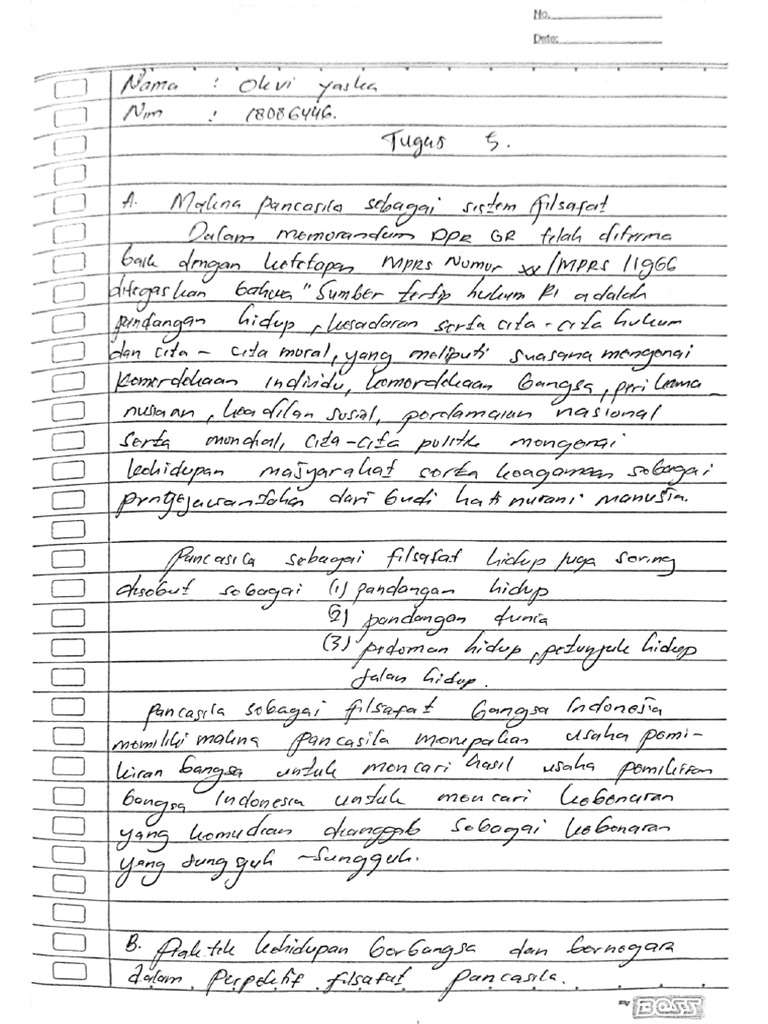 No.
Date:
Nama : Olevi Yaska
Nim : 18086446.
Tugus 5.
A. Makna pancasila sebagai sistem filsafat
Dalam memorandum DPR GR telah diterima
baik dengan ketetapan MPRS Nomor XX/MPRS/1966
ditegaskan bahwa "Sumber tertip hukum RI adalah
pandangan hidup, kesadaran serta cita-cita hukum
dan cita-cita moral, yang meliputi suasana mengenai
kemerdekaan individu, kemerdekaan bangsa, perikema_
nusiaan, keadilan susial, perdamaian nasional
serta mundial, cita-cita pulitik mengenai
kehidupan masyarakat serta keagamaan sebagai
pengejawantahan dari budi hati nurani manusia.
Pancasila sebagai filsafat hidup juga sering
disebut sebagai (1) pandangan hidup
(2) pandangan dunia
(3) pedoman hidup, petunjuk hidup
jalan hidup.
pancasila sebagai filsafat bangsa Indonesia
memiliki makna pancasila merupakan usaha pemi-
kiran bangsa untuk mencari hasil usaha pemikiran
bangsa Indonesia untuk mencari kebenaran
yang kemudian dianggap sebagai kebenaran
yang sungguh-sungguh.
B. Praktek kehidupan berbangsa dan bernegara
dalam perpektif filsafat pancasila.
my BOSS